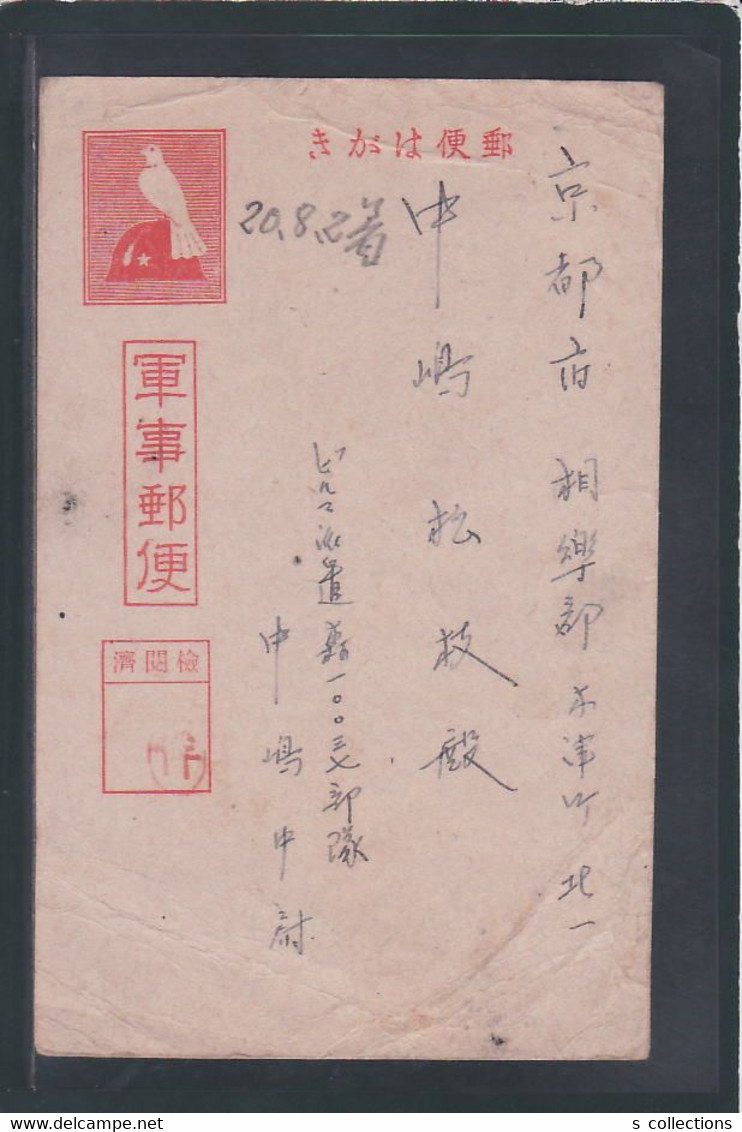 郵便はがき
京都府 相樂郡 木津町 北一
中嶋松枝殿
20.8.2着
ビルマ派遣 一〇〇三七部隊
中嶋中尉
軍事郵便
檢閲濟
s collections